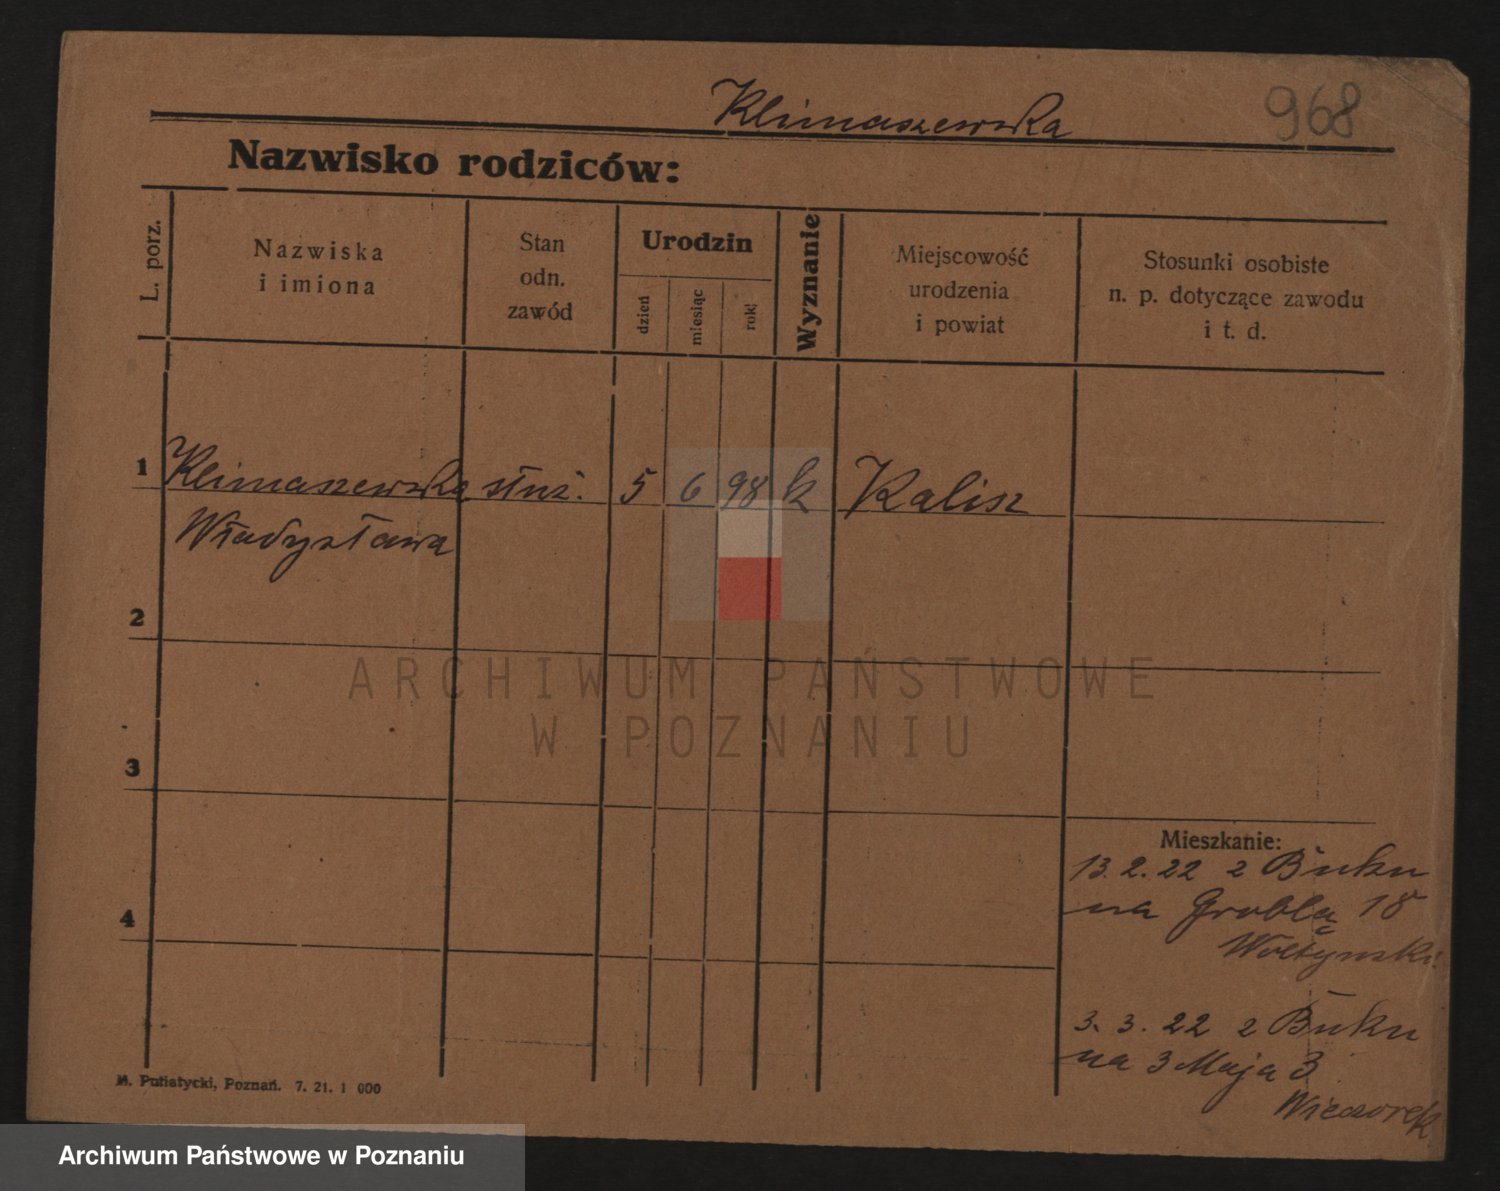 Klimaszewska
968
Nazwisko rodziców:
L. porz.
Nazwiska
i imiona
Stan
odn.
zawód
Urodzin
dzień
miesiąc
rok
Wyznanie
Miejscowość
urodzenia
i powiat
Stosunki osobiste
n. p. dotyczące zawodu
i t. d.
1 Klimaszewska służ. 5 6 98 k Kalisz
Władysława
2
3
4
Mieszkanie:
13. 2. 22 z Buku
na Groblą 18
Wołyński
3. 3. 22 z Buku
na 3 Maja 3
Wieczorek
M. Putiatycki, Poznań. 7. 21. 1 000
ARCHIWUM PAŃSTWOWE
W POZNANIU
Archiwum Państwowe w Poznaniu